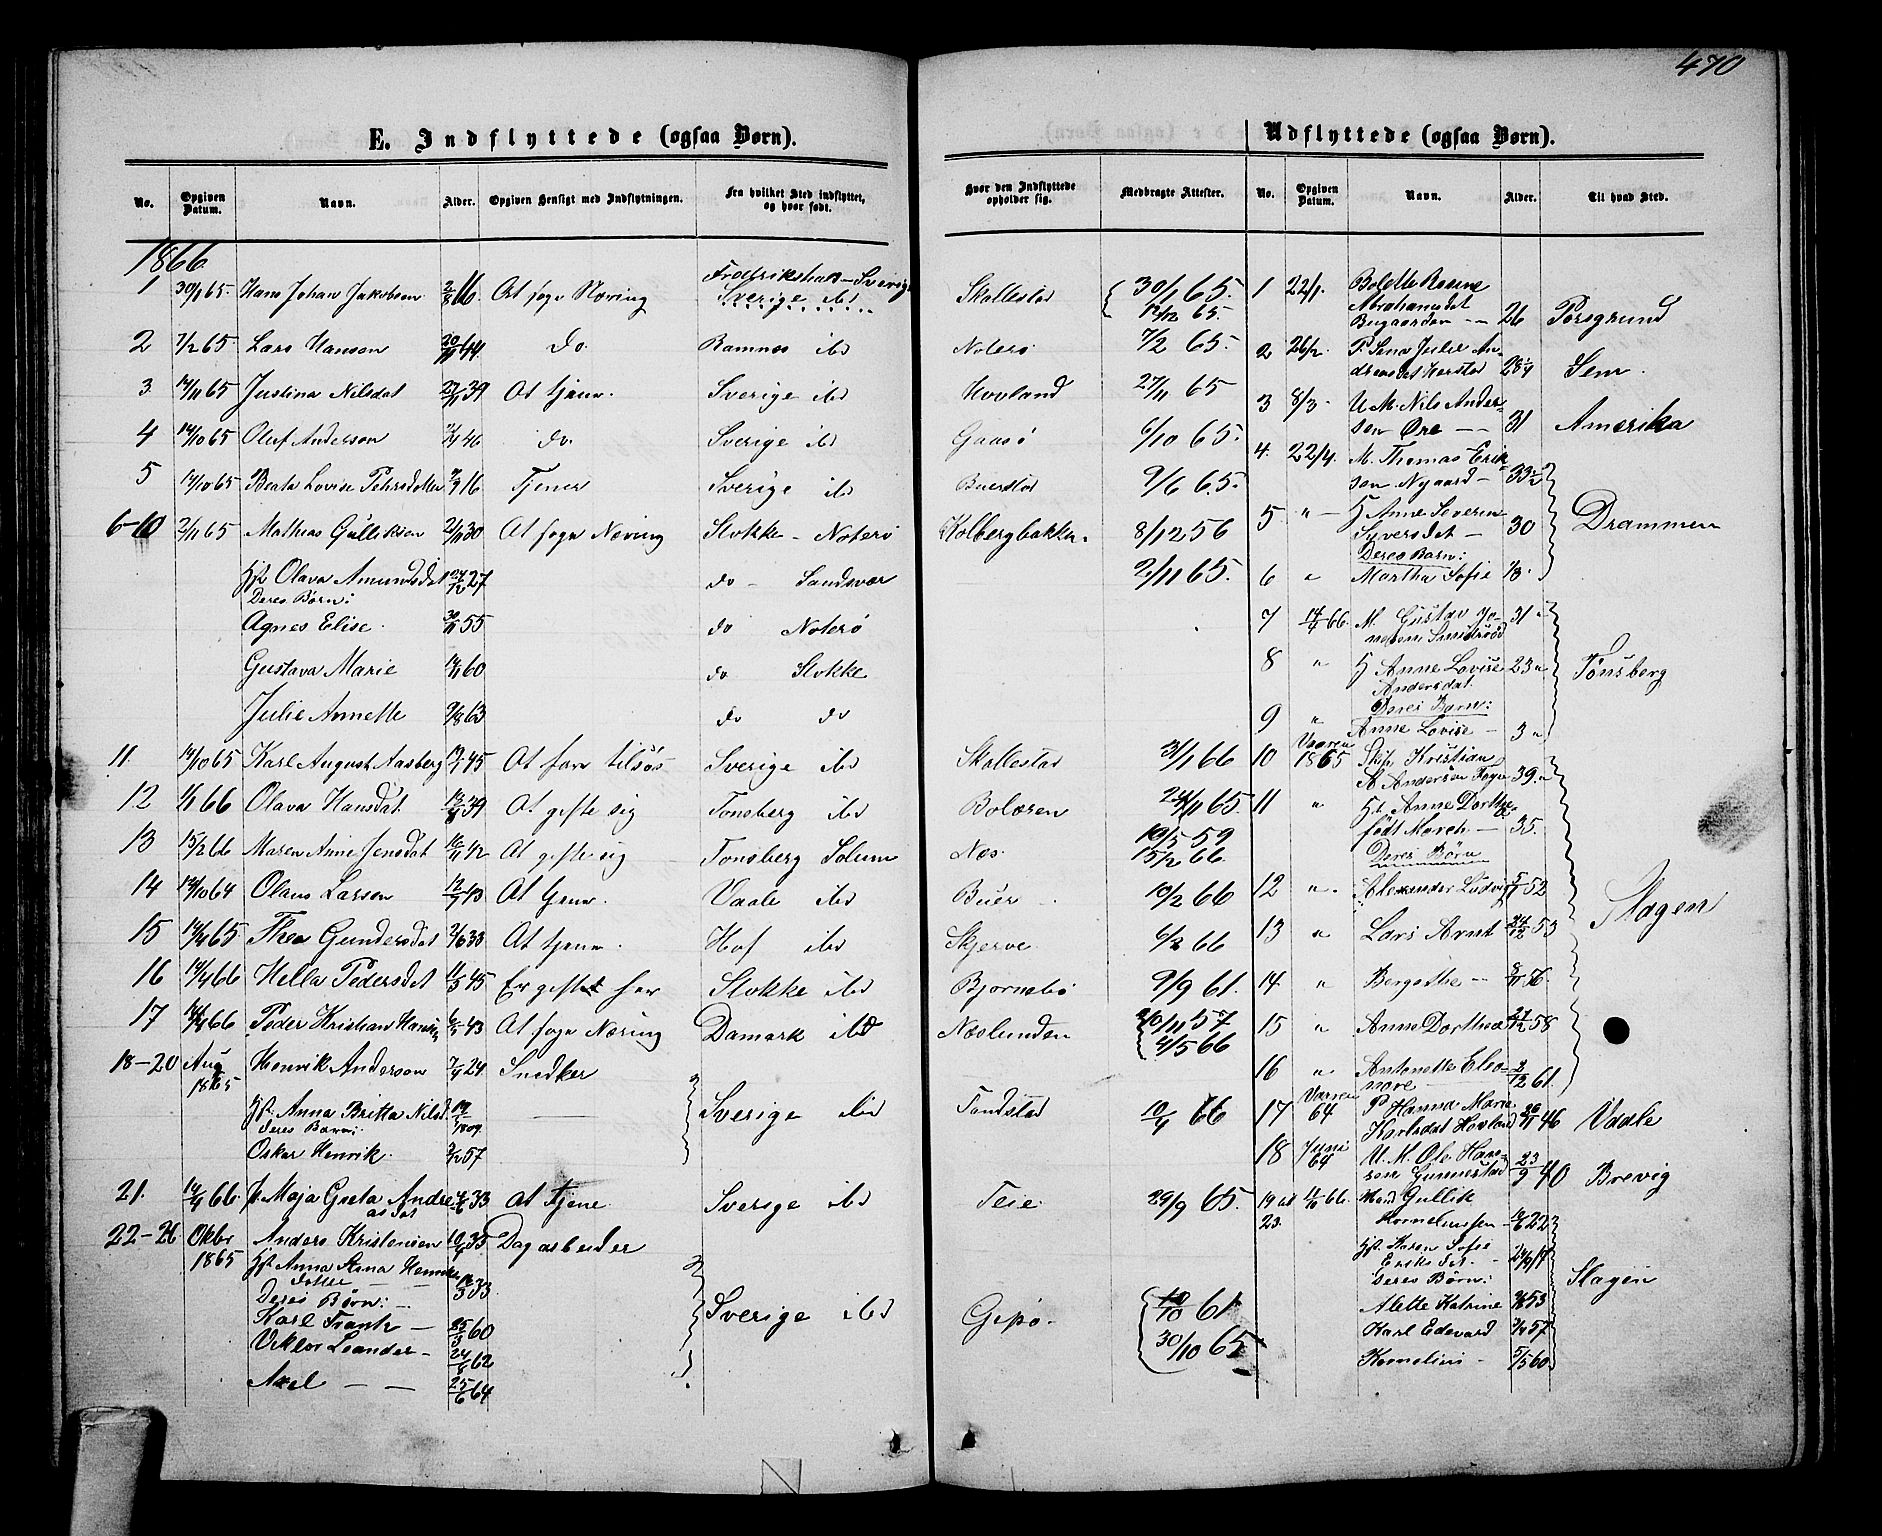 470
E. Indflyttede (ogsaa Børn).
No. Opgiven Datum. Navn. Alder. Opgiven Hensigt med Indflytningen. Fra hvilket Sted indflyttet, og hvor født. Hvor den Indflyttede opholder sig. Medbragte Attester.
1866
1 30/1 65. Hans Johan Jakobsen At søge Næring Sverige ibd Skallestad 30/1 65.
12/12 65.
2 7/2 65 Lars Hansen 20/11 44 do Ramnes ibd Noterø 7/2 65.
3 14/11 65 Justina Nilsdat 39 At tjene. Sverige ibd Hovland 27/11 65
4 14/10 65 Oluf Anderson 46 do Sverige ibd Gaasø 6/10 65.
5 14/10 65 Beata Lovise Pehrsdotter 16 Tjener Sverige ibd Buerstad 9/6 65.
6-10 2/11 65 Mathias Gulliksen 2/11 30 At søge Næring Stokke - Noterø Kolbergbakken. 8/12 56
Hst Olava Amundsdat 27 do - Sandsvær 2/11 65.
Deres Børn:
Agnes Elise. 30/11 55 do Noterø
Gustava Marie 60 do Stokke
Julie Annette 9/8 63 do do
11. 14/10 65 Karl August Aasberg 45 At fare tilsøs Sverige ibd Skallestad 31/1 66
12 1/1 66 Olava Hansdat 39 At gifte sig Tønsberg ibd Bolæren 24/11 65.
13 15/2 66 Maren Anne Jensdat 42 At gifte sig Tønsberg Solum Næs. 19/5 59
15/2 66.
14 14/10 64 Olaus Larsen 43 At tjene. Vaale ibd Buer 19/2 66
15 14/4 65 Thea Gundersdat 33 At tjene. Hof ibd Skjerve 6/2 66
16 14/4 66 Hella Pedersdat 11/5 45 Er giftet her Stokke ibd Bjørnebø 9/9 61.
17 14/4 66 Peder Kristian Hansen 43 At søge Næring Damark ibd Næslunden 20/11 57
4/5 66
18-20 Aug 1865 Henrik Anderson 7/4 24 Snedker
Hst. Anna Britta Nilsd 1809 Sverige ibd Tandstad 10/4 66
deres Barn:
Oskar Henrik. 2/12 57
21. 14/9 66. P. Maja Greta Andreasdat 33 At tjene Sverige ibd Teie. 29/9 65.
22-26 Oktbr 1865 Anders Kristensen 35 Dagarbeider
Hst Anna Stina Henriks dotter 33
Deres Børn: Sverige ibd Gipø. 10/10 61
Karl Frantz 25/3 60 30/10 65
Viktor Leander 24/6 62
Axel 25/6 64
Udflyttede (ogsaa Børn).
No. Opgiven Datum. Navn. Alder. Til hvad Sted.
1 22/1. Bolette Rosine
Abrahamsdat
Bugaarden 26 Porsgrund
2 26/2. P. Lena Julie An-
dreasdat Herstad 23 1/4 Sem.
3 8/3. U.M. Nils Ander-
sen Øre 31 Amerika
4. 22/4. M. Thomas Erik-
sen Nygaard 33 1/2
5. " H Anne Severine
Syversdat 30 Drammen
Deres Barn:
6 " Martha Sofie
7 14/4 66. M. Gustav Jo-
hnsen Smidsrød 31
8 " H Anne Lovise 23 Tønsberg
Andersdat.
Deres Barn:
9 " Anne Lovise 3
10 Vaaren 1865 Skp. Kristian
A Andersen 39.
11 " Hst. Anne Dorthe
født March 35.
Deres Børn
12 " Alexander Ludvig 52
13 " Lars Arnt 24/12 53 Slagen
14 " Bergethe 56.
15 " Anne Dorthea 58
16 " Antonette Eleo-
nore 2/12 61.
17 Vaaren 64 P Hanna Marie
Karlsdat Hovland 46 Vaale
18 Juni 64 U.M. Ole Han-
sen Gunnestad 23/9 40 Brevig
19 til 23. 66. Mand Gullik
Korneliussen 22
Hst. Karen Sofie
Eriksdat. 17
Deres Børn: Slagen
Alette Katrine 53
Karl Edevard 57
Kornelius 5/5 60